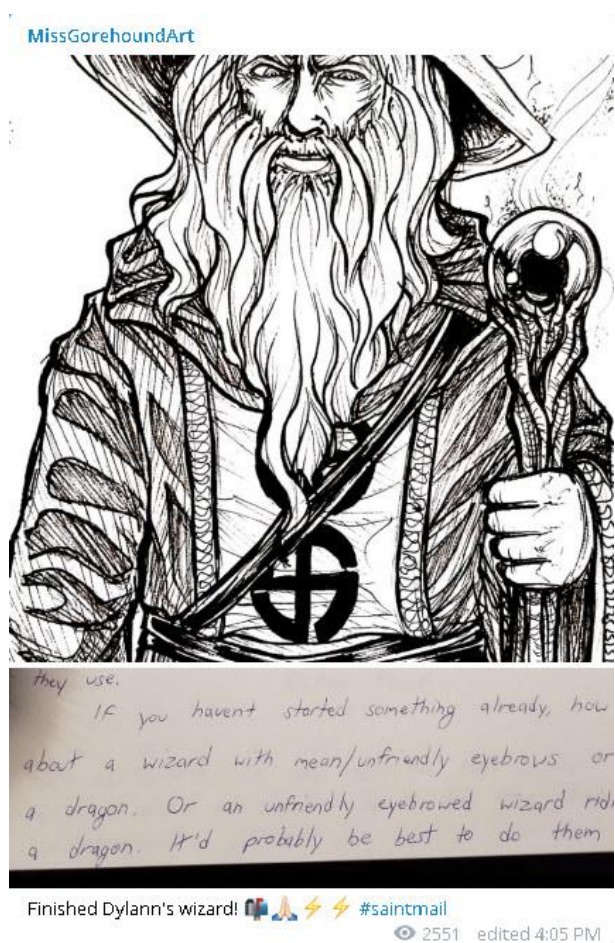 MissGorehoundArt
they use.
If you havent started something already, how
about a wizard with mean/unfriendly eyebrows or
a dragon. Or an unfriendly eyebrowed wizard ride
a dragon. It'd probably be best to do them
Finished Dylann's wizard! 📬🙏🏻⚡⚡ #saintmail
2551 edited 4:05 PM